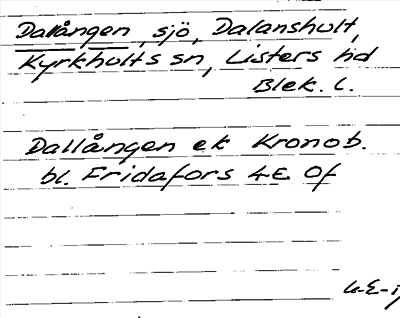 Dallången, sjö, Dalanshult,
Kyrkhults sn, Listers hd
Blek. l.
Dallången ek Kronob.
bl. Fridafors 4E Of